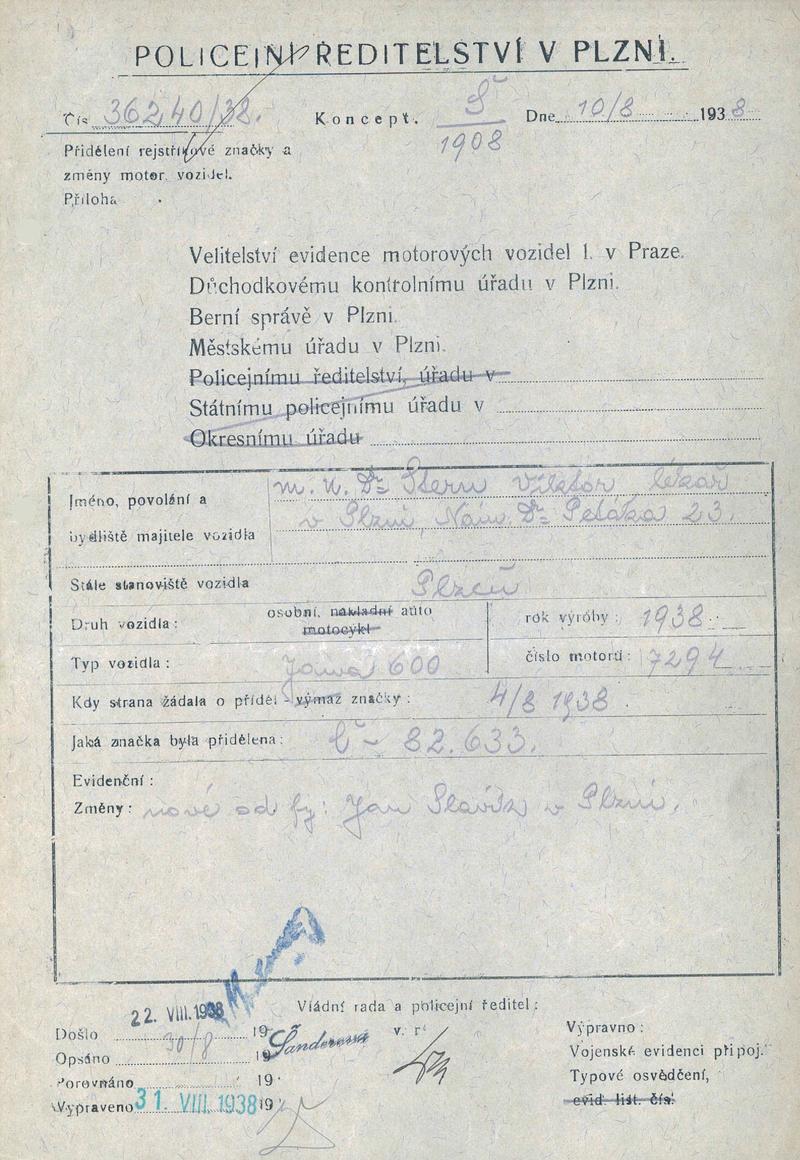 POLICEJNÍ ŘEDITELSTVÍ V PLZNI.
Čís 36240/38.
Koncept.
Š
1908
Dne 10/8 1938
Přidělení rejstříkové značky a
změny motor. vozidel.
Příloha
Velitelství evidence motorových vozidel 1. v Praze.
Důchodkovému kontrolnímu úřadu v Plzni.
Berní správě v Plzni.
Městskému úřadu v Plzni.
Policejnímu ředitelství, úřadu v
Státnímu policejnímu úřadu v
Okresnímu úřadu
Jméno, povolání a
bydliště majitele vozidla
m. n. Dr Stern Viktor lékař
v Plzni, Nám. Dr Petáka 23.
Stálé stanoviště vozidla Plzeň
Druh vozidla: osobní, nákladní auto
motocykl
rok výroby: 1938
Typ vozidla: Jawa 600
číslo motoru: 7294
Kdy strana žádala o příděl - výmaz značky: 4/8 1938.
Jaká značka byla přidělena: Č - 82.633.
Evidenční:
Změny: nové od fy: Jan Slavík v Plzni.
Vládní rada a policejní ředitel:
v. r.
22. VIII. 1938
Došlo 19
Opsáno 30/8 19 Šanderová
Porovnáno 19
Vypraveno 31. VIII. 1938 19
Výpravno:
Vojenské evidenci připoj.
Typové osvědčení,
evid. list. čís.